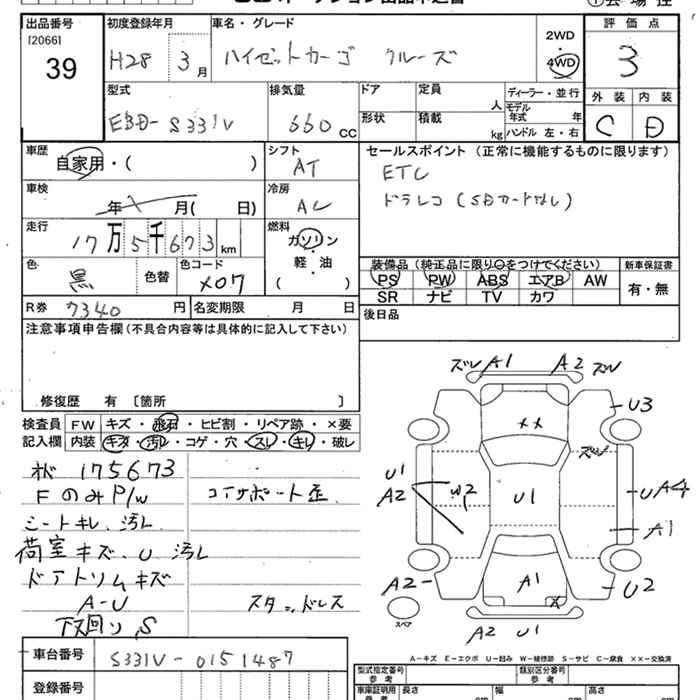 出品番号 初度登録年月 車名・グレード 評価点
[2066]
39
H28 3月 ハイゼットカーゴ クルーズ 2WD・4WD 3
外装 内装
C D
型式 排気量 ドア 定員 ディーラー・並行
人 モデル年式 年
EBD-S331V 660cc 形状 積載 kg ハンドル 左・右
車歴 シフト セールスポイント(正常に機能するものに限ります)
自家用・( ) AT ETC
車検 冷房 ドラレコ(SDカードなし)
年 月( 日) AC
走行 燃料
17万5千673km ガソリン
軽・油
( )
色 色替 色コード 装備品(純正品に限り○をつけてください) 新車保証書
黒 X07 PS PW ABS エアB AW 有・無
SR ナビ TV カワ
R券 7340円 名変期限 月 日 後日品
注意事項申告欄(不具合内容等は具体的に記入して下さい)
修復歴 有 [箇所 ]
検査員 FW キズ・飛石・ヒビ割・リペア跡・×要
記入欄 内装 キズ・汚れ・コゲ・穴・スレ・キレ・破レ
175673
Fのみ P/W コアサポート歪
シートキレ、汚レ
荷室キズ、U、汚レ
ドアトリムキズ
A-U スタッドレス
下回り、S
ズレ A1 A2 ズレ
U3
××
ズレ
U1
A2 W2 U1 UA4
A1
A2 A1 × U2
スペア
A2 U1
A-キズ E-エクボ U-凹み W-補修跡 S-サビ C-腐食 ××-交換済
車台番号 S331V-0151487
登録番号
型式指定番号 参考 類別区分番号 参考
車庫証明用 参考 長さ cm 幅 cm 高さ cm